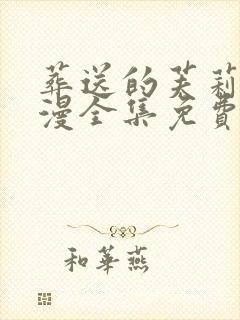 葬送的芙莉
漫全集免费
和華燕